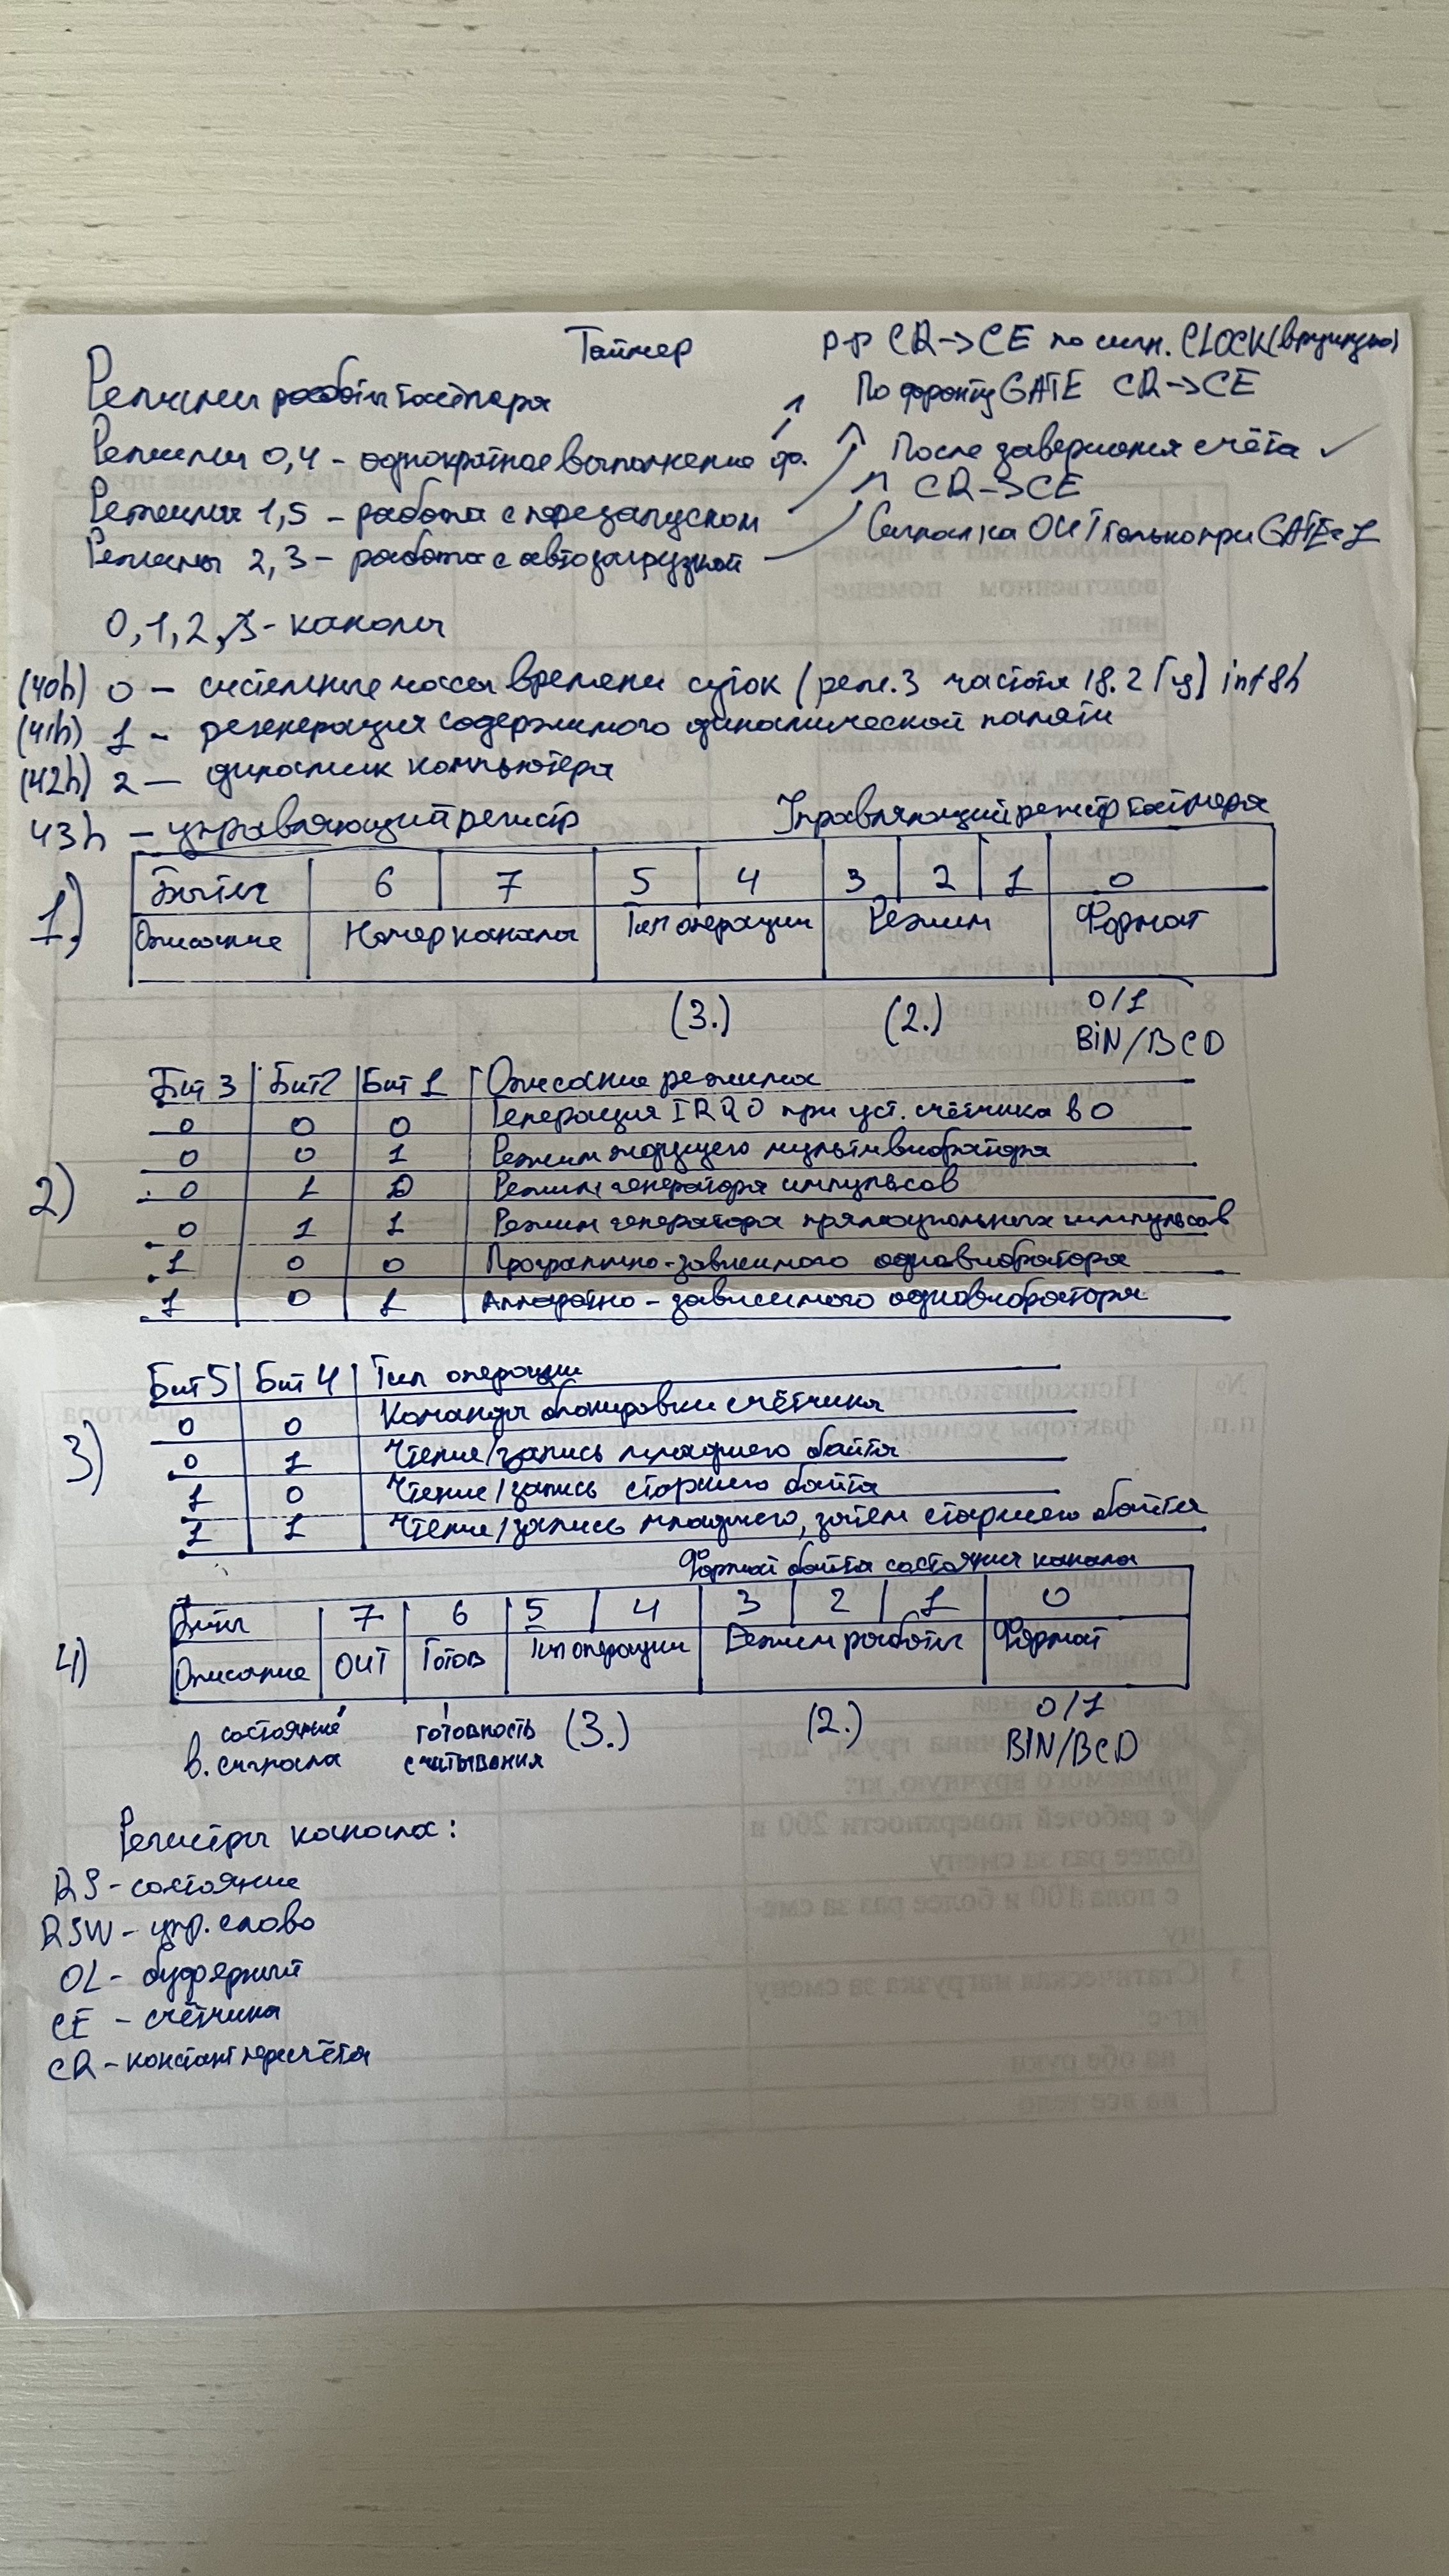 Таймер
р-р CR->CE по сигн. CLOCK (вручную)
Режимы работы таймера
По фронту GATE CR->CE
Режимы 0,4 - однократное выполнение ф.
После завершения счёта ✓
CR->CE
Режимы 1,5 - работа с перезапуском
Сигнал на OUT только при GATE=1
Режимы 2,3 - работа с автозагрузкой
0,1,2,3 - каналы
(40h) 0 - системные часы времени суток (реж.3 частота 18.2 Гц) int8h
(41h) 1 - регенерация содержимого динамической памяти
(42h) 2 - динамик компьютера
43h - управляющий регистр
Управляющий регистр таймера
1)
Биты 6 7 5 4 3 2 1 0
Описание Номер канала Тип операции Режим Формат
(3.) (2.) 0/1
BIN/BCD
2)
Бит 3 Бит 2 Бит 1 Описание режима
0 0 0 Генерация IRQ0 при уст. счётчика в 0
0 0 1 Режим ждущего мультивибратора
0 1 0 Режим генератора импульсов
0 1 1 Режим генератора прямоугольных импульсов
1 0 0 Программно-зависимого одновибратора
1 0 1 Аппаратно-зависимого одновибратора
3)
Бит 5 Бит 4 Тип операции
0 0 Команда блокировки счётчика
0 1 Чтение/запись младшего байта
1 0 Чтение/запись старшего байта
1 1 Чтение/запись младшего, затем старшего байта
Формат байта состояния канала
4)
Биты 7 6 5 4 3 2 1 0
Описание OUT Готов Тип операции Режим работы Формат
состояние готовность (3.) (2.) 0/1
в. сигнала считывания BIN/BCD
Регистры канала:
RS - состояние
RSW - упр. слово
OL - буферный
CE - счётчика
CR - констант пересчёта